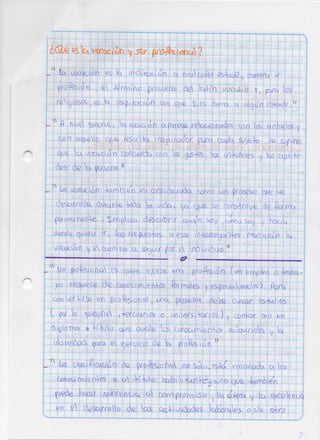 ¿Qué es la vocación y ser profesional?
_" La vocación es la inclinación a cualquier estado, carrera o
profesión. El término proviene del latín vocatio y, para los
religiosos, es la inspiración con que Dios llama a algún estado."
_" A nivel general, la vocación aparece relacionada con los anhelos y
con aquello que resulta inspirador para cada sujeto. Se supone
que la vocación concuerda con los gustos, los intereses y las aptitu-
des de la persona."
_" La vocación también es considerada como un proceso que se
desarrolla durante toda la vida, ya que se construye de forma
permanente. Implica descubrir quién soy, cómo soy y hacia
donde quiero ir. Las respuestas a esos interrogantes marcarán la
vocación y el camino a seguir por el individuo."
_" Un profesional es quien ejerce una profesión (un empleo o traba-
jo requiere de conocimientos formales y especializados). Para
convertirse en profesional, una persona debe cursar estudios
( por lo general, terciarios o universitarios) y contar con un
diploma o título que avale los conocimientos adquiridos y la
idoneidad para el ejercicio de la profesión."
_" La clasificación de profesional no solo está vinculada a los
conocimientos o al título habilitante, sino que también
puede hacer referencia al compromiso, la ética y la excelencia
en el desarrollo de las actividades laborales o de otro